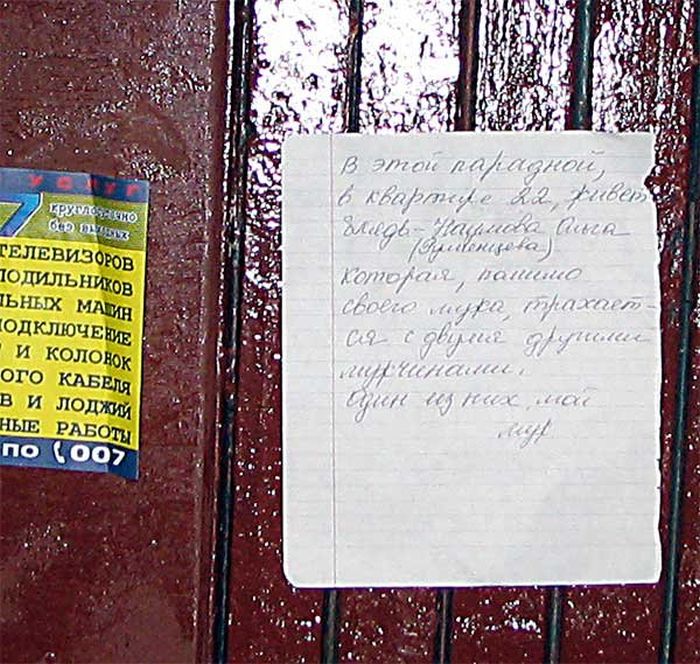 УСЛУГ
7
круглосуточно
без выходных
ТЕЛЕВИЗОРОВ
ЛОДИЛЬНИКОВ
ЛЬНЫХ МАШИН
ПОДКЛЮЧЕНИЕ
И КОЛОНОК
ОГО КАБЕЛЯ
В И ЛОДЖИЙ
НЫЕ РАБОТЫ
ПО 007
В этой парадной,
в квартире 22, живет
блядь - Наумова Ольга
которая, помимо
своего мужа, трахает-
ся с двумя другими
мужчинами.
Один из них, мой
муж